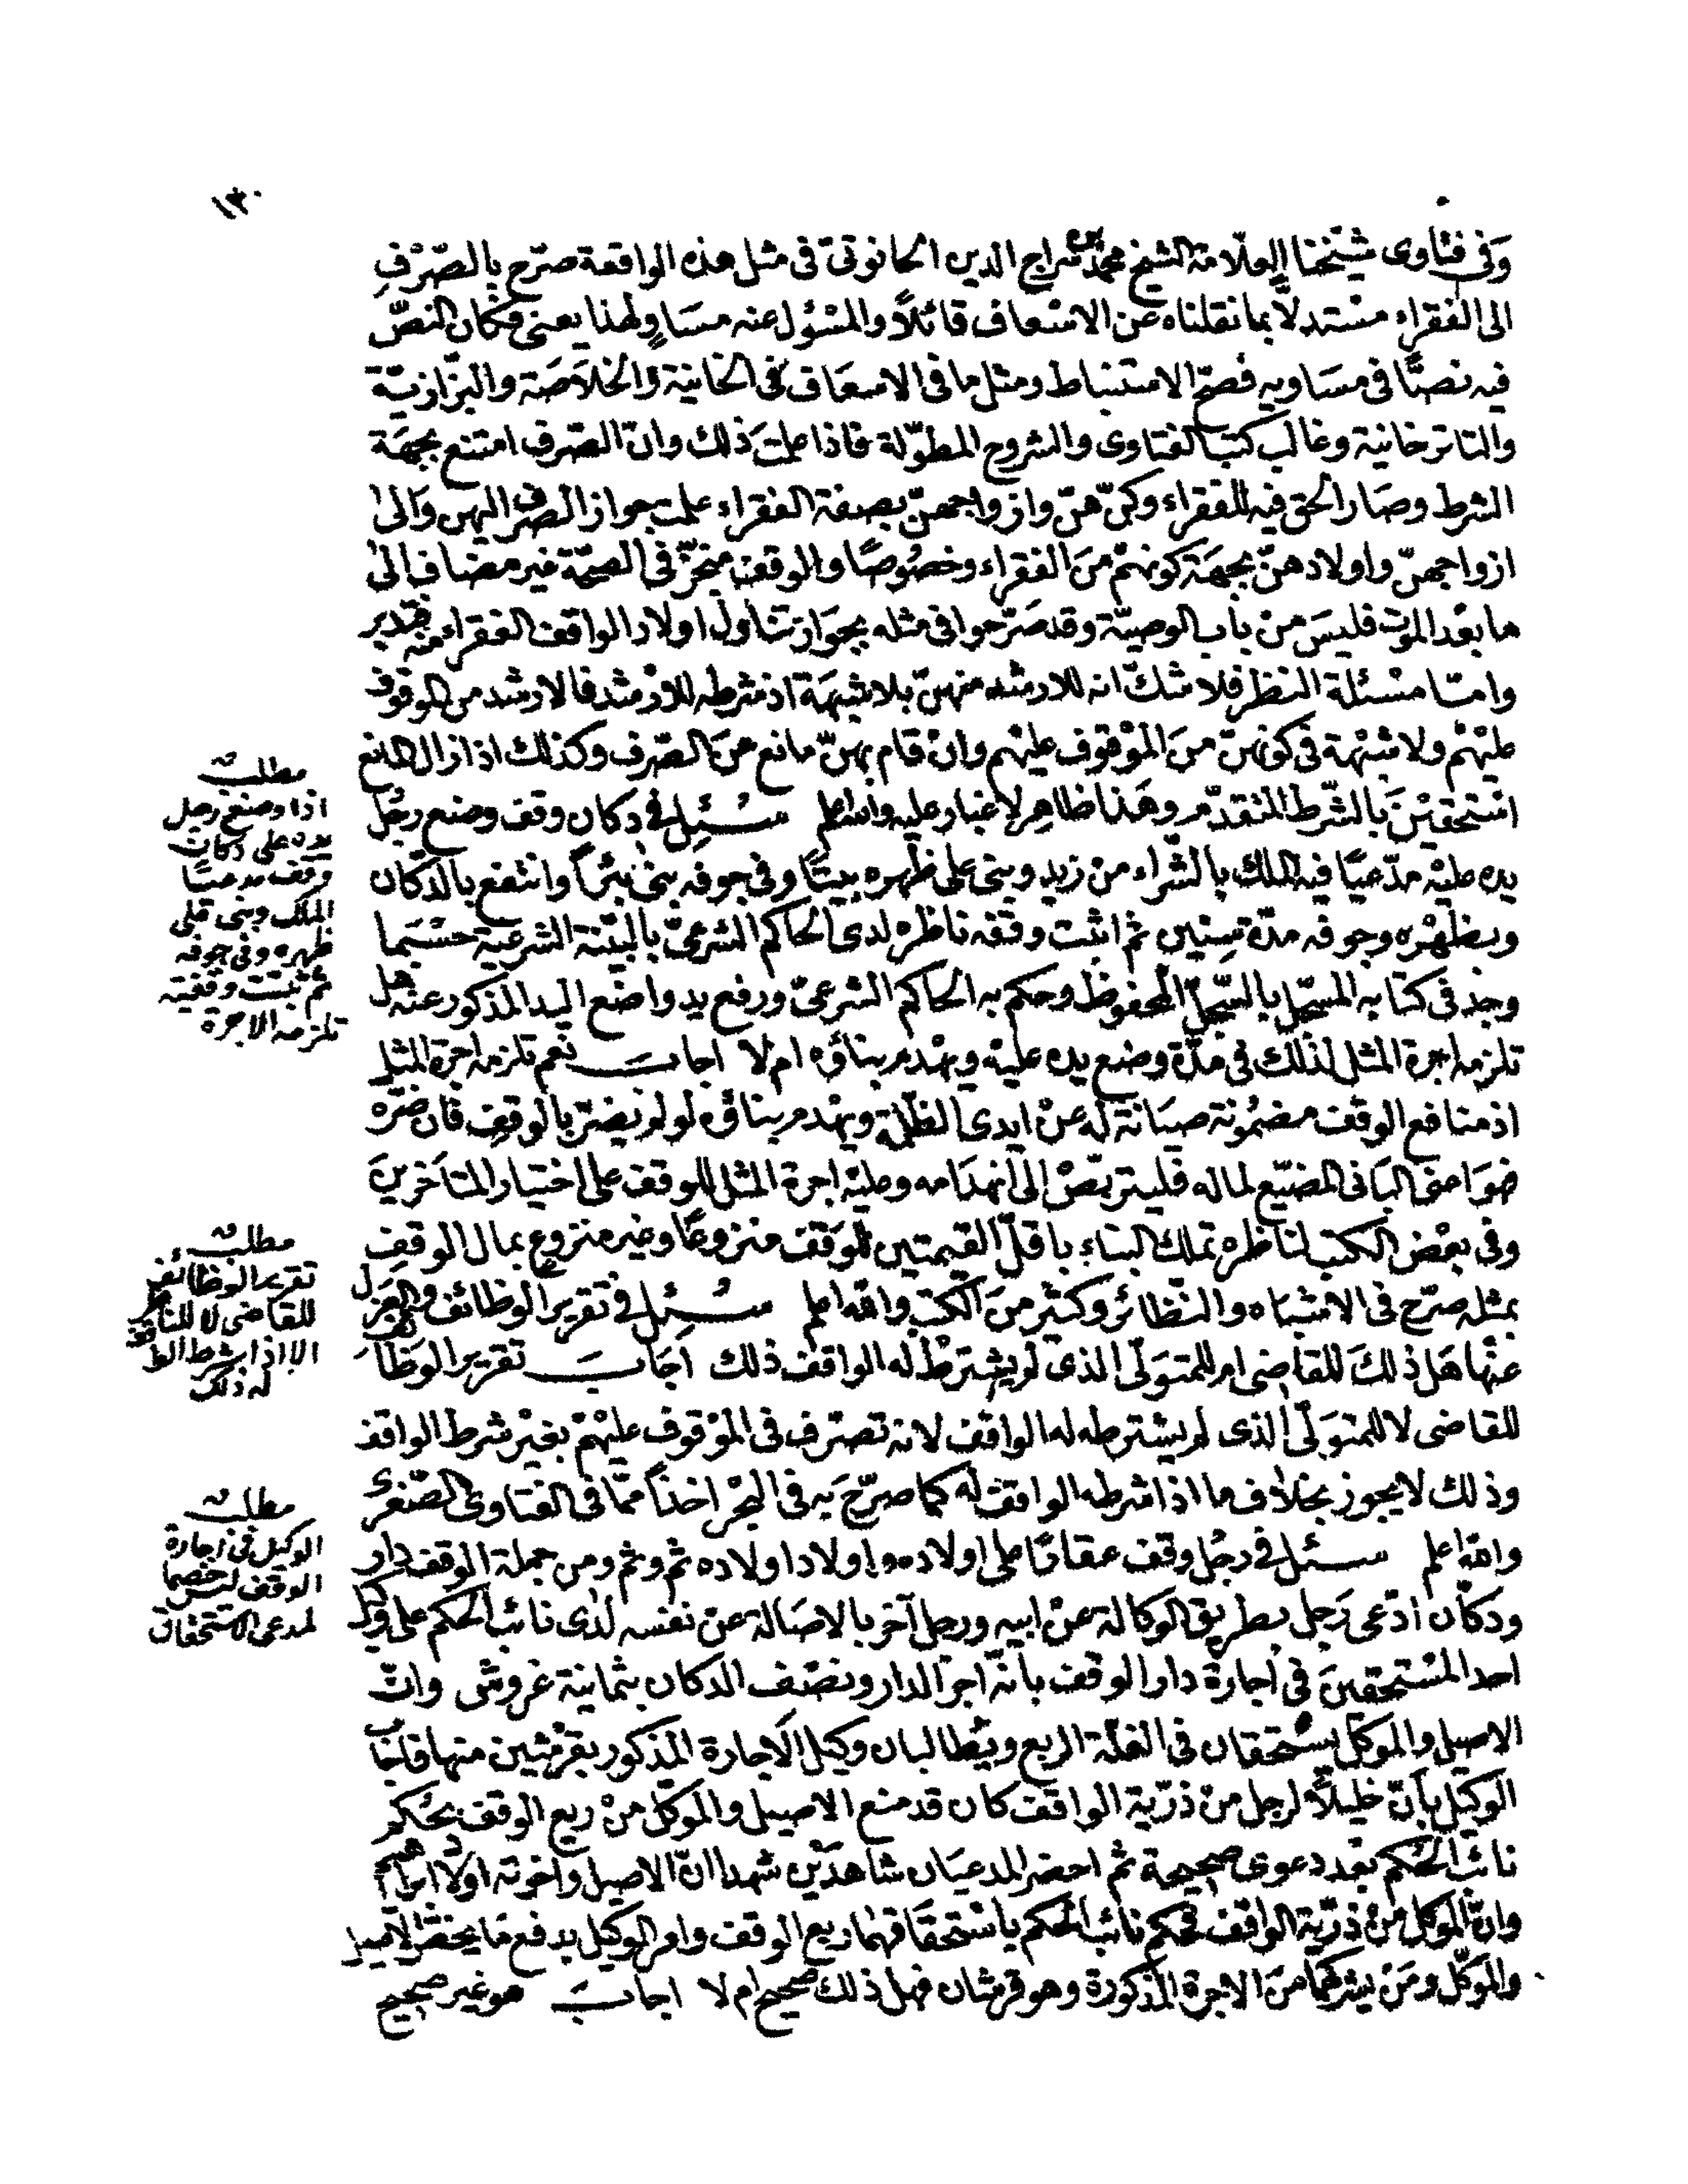 ١٣٠
وفى فتاوى شيخنا العلامة الشيخ محمد بن سراج الدين الحانوتى فى مثل هذه الواقعة صرّح بالصّرف
الى الفقراء مستدلاً بما نقلناه عن الاسعاف قائلاً والمسؤل عنه مساوٍ لهذا يعنى فكان النصّ
فيه نصًّا فى مساويه فصحّ الاستنباط ومثل ما فى الاسعاف فى الخانية والخلاصة والبزّازيّة
والتاترخانية وغالب كتب الفتاوى والشروح المطوّلة فاذا علمت ذلك وانّ الصّرف امتنع بجهة
الشرط وصار الحق فيه للفقراء وكنّ هنّ وازواجهنّ بصفة الفقراء علمت جواز الصرف اليهن والى
ازواجهنّ واولادهنّ بجهة كونهم من الفقراء وخصوصًا والوقف منجّز فى الصحّة غير مضاف الى
ما بعد الموت فليس من باب الوصيّة وقد صرّحوا فى مثله بجواز تناول اولاد الواقف الفقراء منه فتدبر
وامّا مسئلة النظر فلا شكّ انه للارشد منهنّ بلا شبهة اذ شرطه للارشد فالارشد من الموقوف
عليهم ولا شبهة فى كونهنّ من الموقوف عليهم وان قام بهنّ مانع عن الصّرف وكذلك اذا زال المانع
استحقين بالشرط المتقدّم وهذا ظاهر لا غبار عليه والله اعلم سئل فى دكان وقف وضع رجل
يده عليه مدّعيًا فيه الملك بالشراء من زيد وبنى على ظهره بيتًا وفى جوفه بنى بئرًا وانتفع بالدكّان
وبظهره وجوفه مدّة سنين ثم اثبت وقفه ناظره لدى الحاكم الشرعىّ بالبيّنة الشرعية حسبما
وجد فى كتابه المسجّل بالسّجلّ المحفوظ وحكم به الحاكم الشرعىّ ورفع يد واضع اليد المذكور عنه هل
تلزمه اجرة المثل لذلك فى مدّة وضع يده عليه ويهدم بناؤه ام لا اجاب نعم تلزمه اجرة المثل
اذ منافع الوقف مضمونة صيانة له عن ايدى الظلمة ويهدم بناؤه لو لم يضرّ بالوقف فان ضرّه
فهو اعنى البانى المضيّع لماله فليتربّص الى انهدامه وعليه اجرة المثل للوقف على اختيار المتأخرين
وفى بعض الكتب لناظره تملك البناء باقلّ القيمتين للوقف منزوعًا وغير منزوع بمال الوقف
بمثله صرّح فى الاشباه والنظائر وكثير من الكتب والله اعلم سئل فى تقرير الوظائف والعزل
عنها هل ذلك للقاضى ام للمتولّى الذى لم يشترط له الواقف ذلك اجاب تقرير الوظائف
للقاضى لا للمتولّى الذى لم يشترطه له الواقف لانه تصرّف فى الموقوف عليهم بغير شرط الواقف
وذلك لا يجوز بخلاف ما اذا شرطه الواقف له كما صرّح به فى البحر اخذاً ممّا فى الفتاوى الصّغرى
والله اعلم سئل فى رجل وقف عقارًا على اولاده واولاد اولاده ثم وثم ومن جملة الوقف دار
ودكّان ادّعى رجل بطريق الوكالة عن ابيه ورجل آخر بالاصالة عن نفسه لدى نائب الحكم على وكيل
احد المستحقين فى اجارة دار الوقف بانّه آجر الدار ونصف الدكان بثمانية غروش وانّ
الاصيل والموكل يستحقان فى الغلّة الربع ويطالبان وكيل الاجارة المذكور بقرشين منها فاجاب
الوكيل بانّ خليلاً لرجل من ذرّية الواقف كان قد منع الاصيل والموكّل من ريع الوقف بحكم
نائب الحكم بعد دعوى صحيحة ثم احضر المدعيان شاهدين شهدا انّ الاصيل واخوته اولاد ابراهيم
وانّ الموكل من ذرّية الواقف فحكم نائب الحكم باستحقاقهما ريع الوقف وامر الوكيل بدفع ما يخصّ الاصيل
والموكّل ومن يشركهما من الاجرة المذكورة وهو قرشان فهل ذلك صحيح ام لا اجاب هو غير صحيح
مطلب
اذا وضع رجل
يده على دكان
وقف مدعيًا
الملك وبنى على
ظهره وفى جوفه
ثم ثبتت وقفيته
تلزمه الاجرة
مطلب
تقرير الوظائف
للقاضى لا للناظر
الا اذا شرط الواقف
له ذلك
مطلب
الوكيل فى اجارة
الوقف ليس خصما
لمدعى الاستحقاق